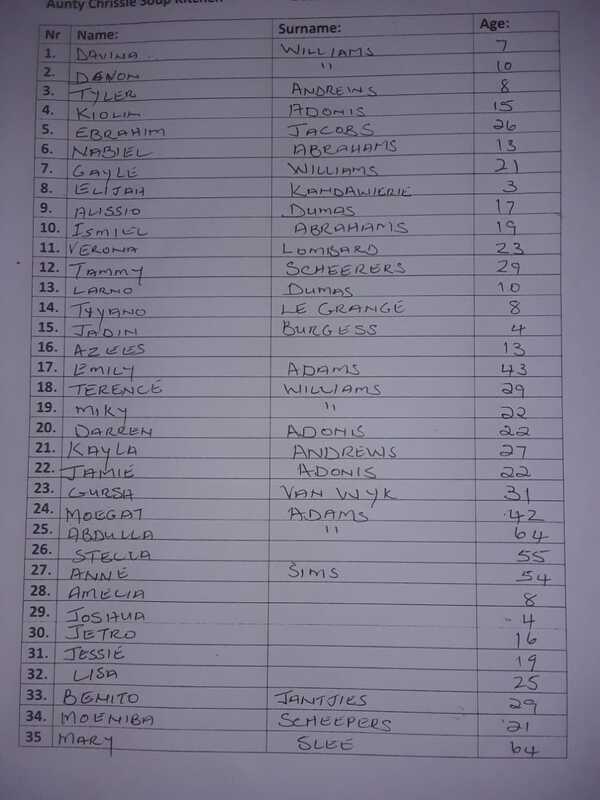 Aunty Chrissie Soup Kitchen
Nr Name: Surname: Age:
1. DAVINA WILLIAMS 7
2. DANON " 10
3. TYLER ANDREWS 8
4. KIOLIN ADONIS 15
5. EBRAHIM JACOBS 26
6. NABIEL ABRAHAMS 13
7. GAYLE WILLIAMS 21
8. ELIJAH KANDAWIERIE 3
9. ALISSIO DUMAS 17
10. ISMIEL ABRAHAMS 19
11. VERONA LOMBARD 23
12. TAMMY SCHEERERS 29
13. LARNO DUMAS 10
14. LE GRANGE 8
15. JADIN BURGESS 4
16. AZEES 13
17. EMILY ADAMS 43
18. TERENCE WILLIAMS 29
19. MIKY " 22
20. DARREN ADONIS 22
21. KAYLA ANDREWS 27
22. JAMIE ADONIS 22
23. GURSA VAN WYK 31
24. MOEGAT ADAMS 42
25. ABDULLA " 64
26. STELLA 55
27. ANNE SIMS 54
28. AMELIA 8
29. JOSHUA 4
30. JETRO 16
31. JESSIE 19
32. LISA 25
33. BENITO JANTJIES 29
34. MOENIBA SCHEEPERS 21
35 MARY SLEE 64